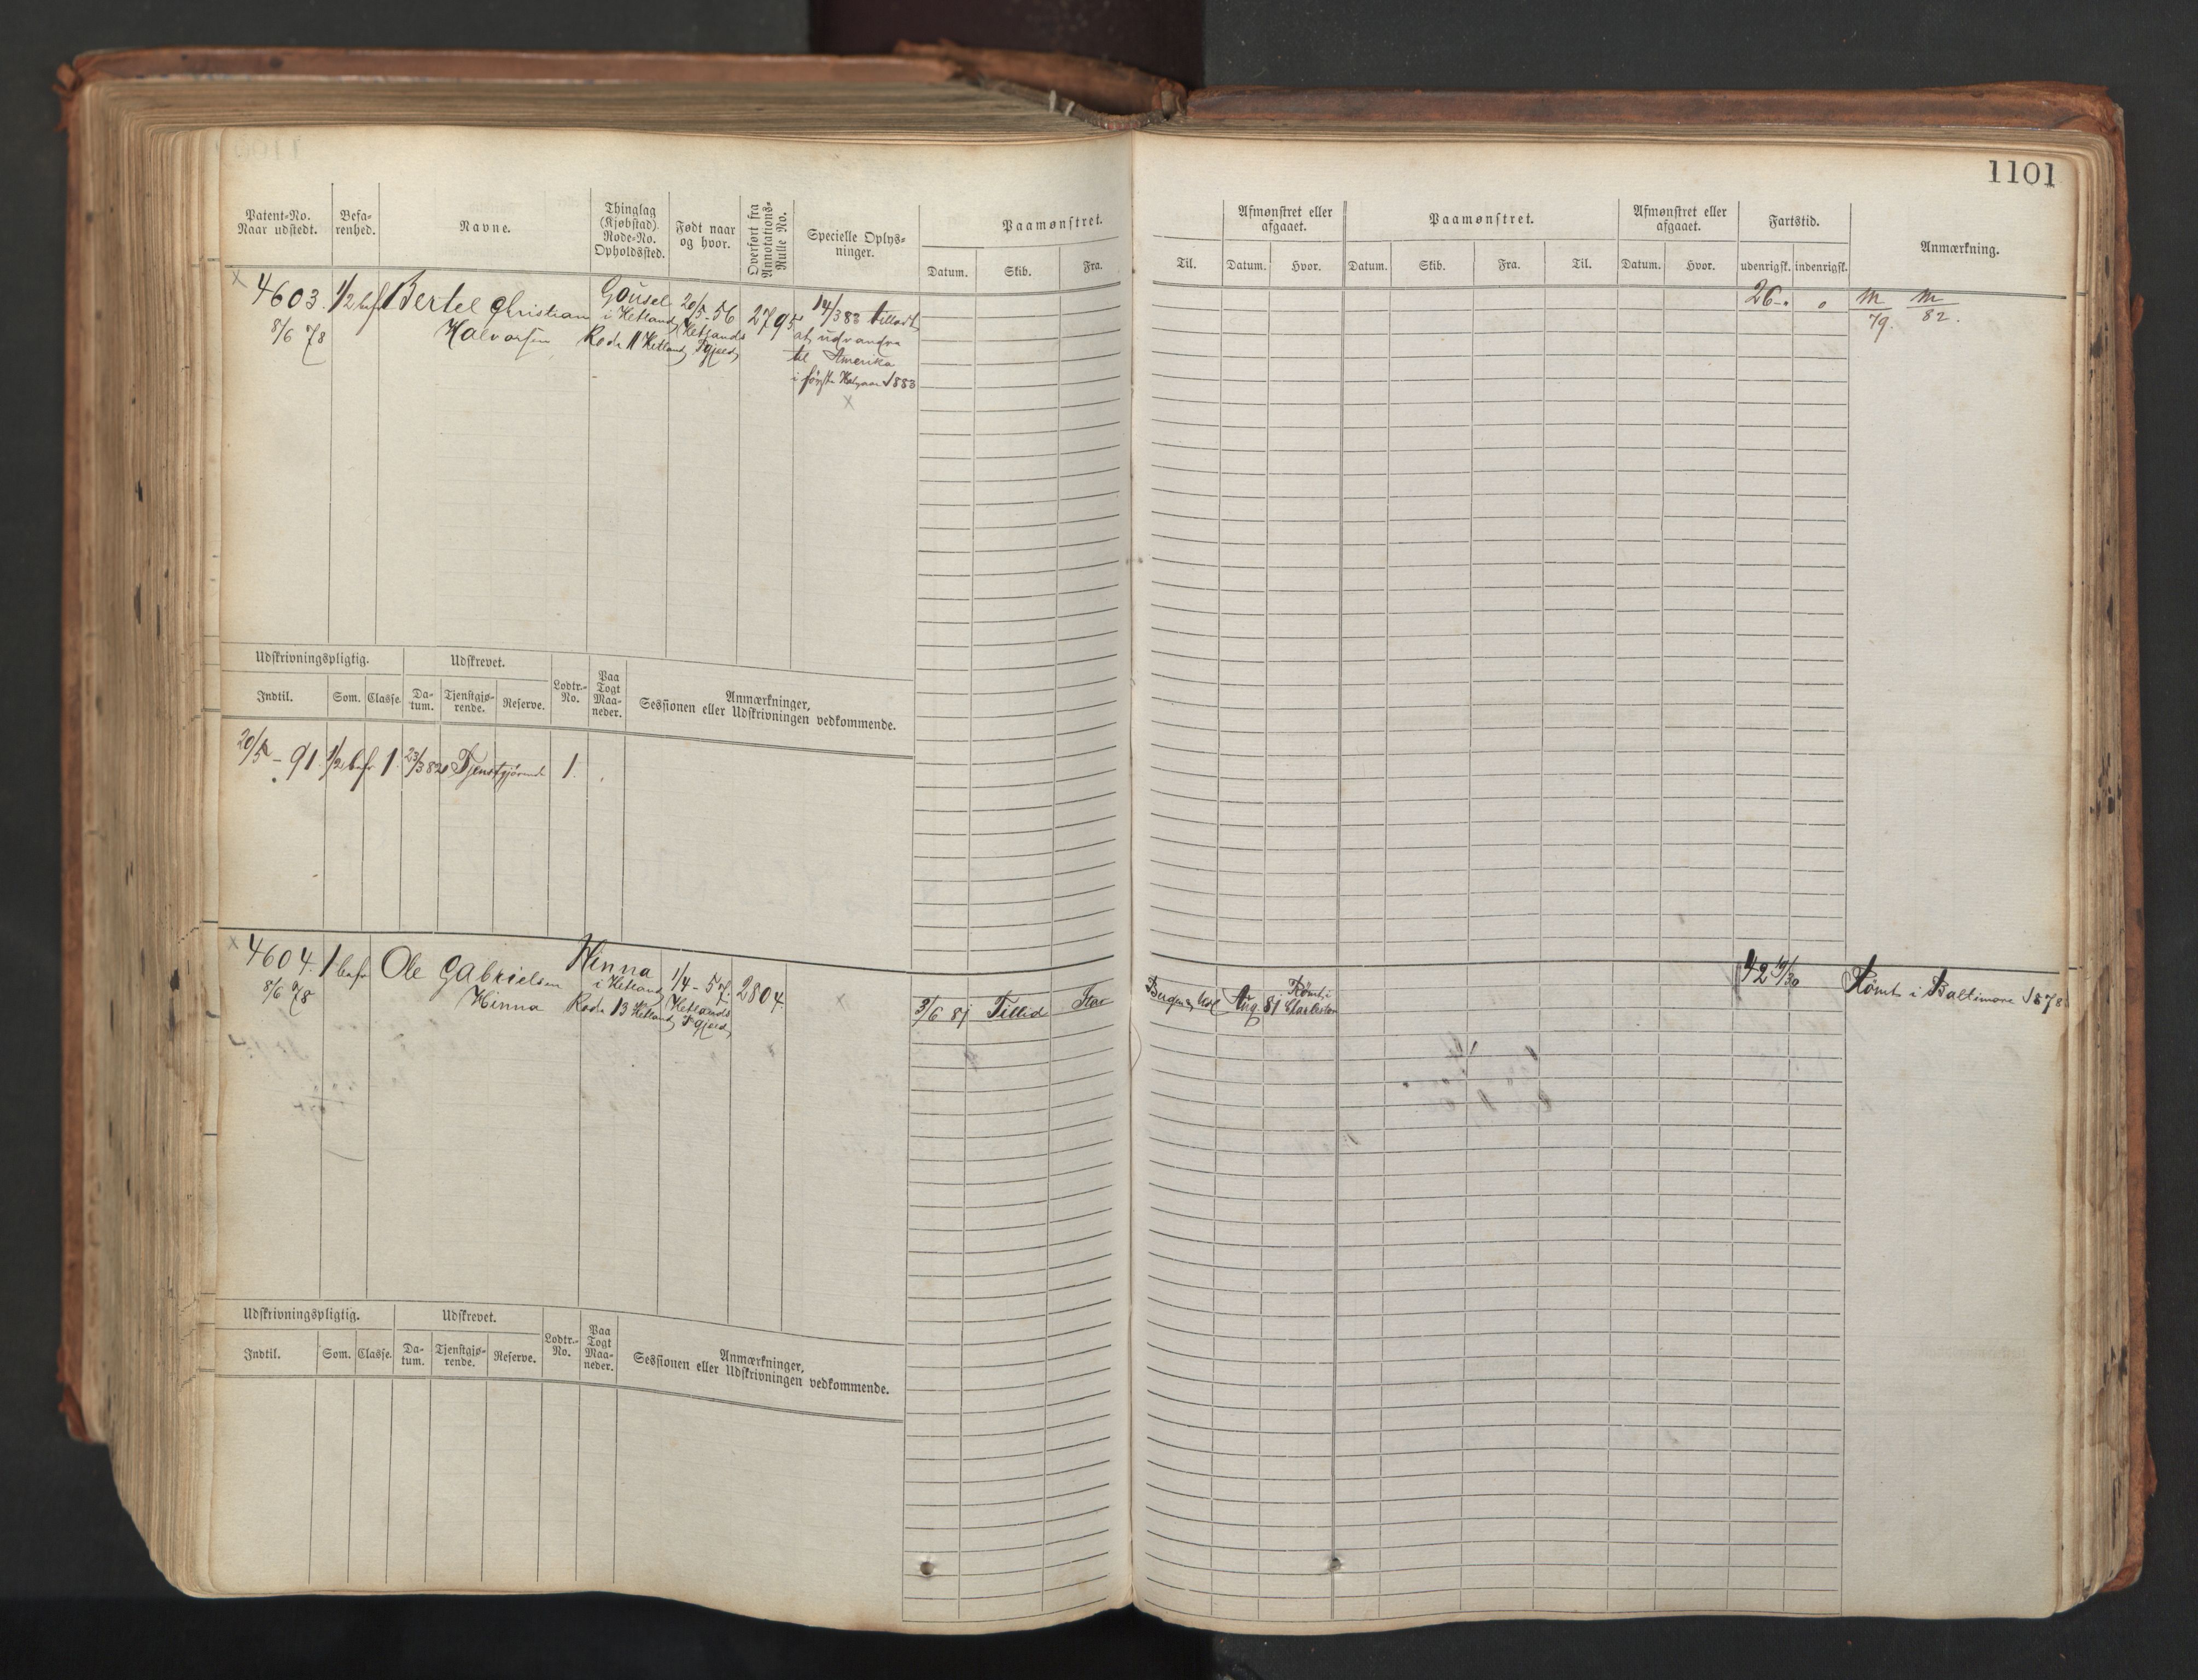 1101
Patent-No.
Naar udstedt.
Befa-
renhed.
Navne.
Thinglag
(Kjøbstad).
Rode-No.
Opholdssted.
Født naar
og hvor.
Overført fra
Annotations-
Rulle No.
Specielle Oplys-
ninger.
Paamønstret.
Datum. Skib. Fra.
Til.
Afmønstret eller
afgaaet.
Datum. Hvor.
Paamønstret.
Datum. Skib. Fra. Til.
Afmønstret eller
afgaaet.
Datum. Hvor.
Fartstid.
udenrigsk. indenrigsk.
Anmærkning.
x 4603.
8/6 78
1/2 bef
Bertel Christian
Halvorsen
Gousel
i Hetland
Rode 11 Hetland
20/5-56
Hetlands
Pgjeld
2795
14/3 83 tilladt
at udvandre
til Amerika
i første Halvaar 1883
x
26 - 0
m/79. m/82.
Udskrivningspligtig.
Indtil. Som. Classe.
Udskrevet.
Da-
tum.
Tjenstgjø-
rende.
Reserve.
Lodtr.-
No.
Paa
Togt
Maa-
neder.
Anmærkninger,
Sessionen eller Udskrivningen vedkommende.
20/5 - 91 1/2 bef 1. 23/3 82 Tjenstgjørende 1.
x 4604.
8/6 78
1 bef
Ole Gabrielsen
Hinna
Hinna
i Hetland
Rode 13 Hetland
1/4-57.
Hetlands
Pgjeld
2804.
x
3/6 81 Tillid
Aug. 81 Rømt i
Charleston
42 19/30
Rømt i Baltimore 1878
Udskrivningspligtig.
Indtil. Som. Classe.
Udskrevet.
Da-
tum.
Tjenstgjø-
rende.
Reserve.
Lodtr.-
No.
Paa
Togt
Maa-
neder.
Anmærkninger,
Sessionen eller Udskrivningen vedkommende.